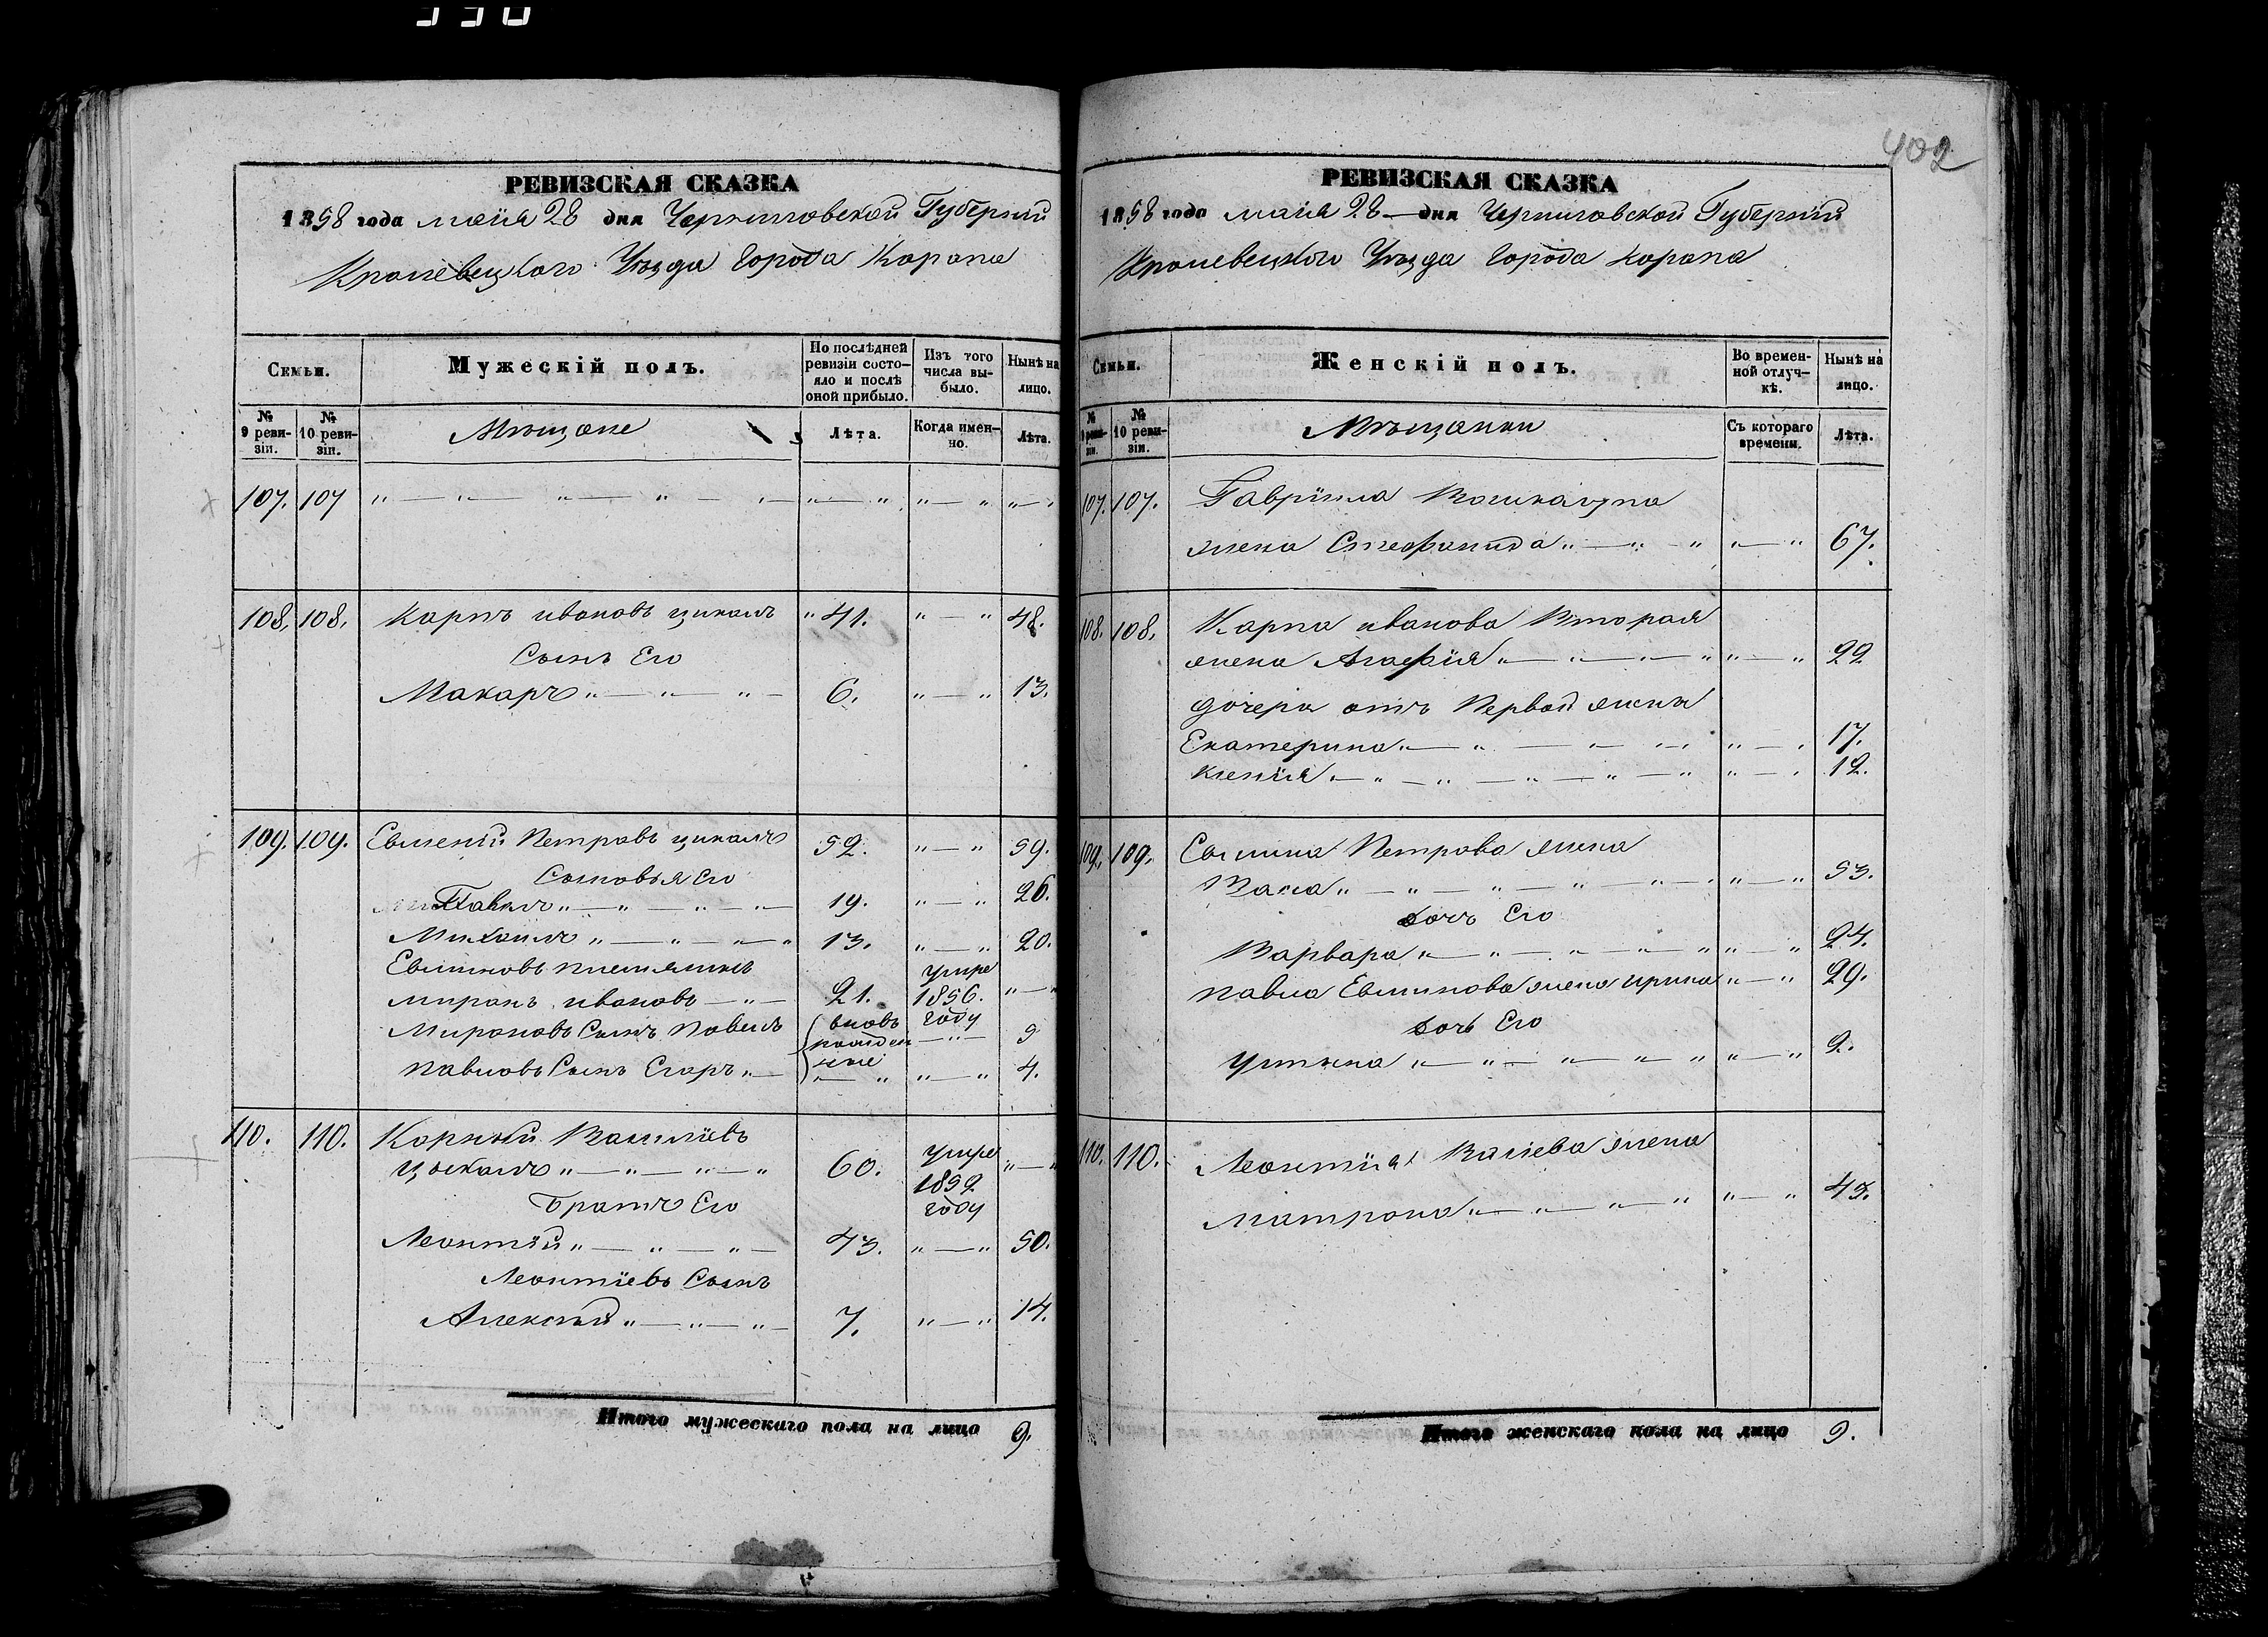 402
РЕВИЗСКАЯ СКАЗКА
1858 года маія 28 дня Черниговской Губерніи
Кролевецкого Уѣзда Города Коропа
Семьи.
Мужескій полъ.
По послѣдней ревизіи состояло и послѣ оной прибыло.
Изъ того числа выбыло.
Нынѣ на лицо.
№ 9 ревизіи.
№ 10 ревизіи.
Мѣщане
Лѣта.
Когда именно.
Лѣта.
107. 107 „ — „ — „ — „ — „ — „ — „
108. 108. Карпъ ивановъ цикалъ „ 41. „ — „ 48.
Сынъ Его
Макаръ „ — „ — „ — 6. „ — „ 13.
109. 109. Евменій Петровъ цикалъ 52. „ — „ 59.
Сыновья Его
Павелъ „ — „ — „ — 19. „ — „ 26.
Михаилъ „ — „ — „ — „ 13. „ — „ 20.
племяникъ умре
миронъ ивановъ — „ — 21. 1856. „ — „
Мироновъ Сынъ Павелъ вновь году 9
рожден — „ —
Павловъ Сынъ Егоръ „ — ные „ — „ 4.
110. 110. Корній Василіевъ умре
Цыкалъ „ — „ — „ — „ 60. 1852 „ — „
Братъ Его году
Леонтій „ — „ — „ — 43. „ — „ 50.
Леонтіевъ Сынъ
Алексѣй „ — „ — „ — 7. „ — „ 14.
Итого мужескаго пола на лицо 9.
РЕВИЗСКАЯ СКАЗКА
1858 года маія 28 — дня Черниговской Губерніи
Кролевецкого Уѣзда Города Коропа
Семьи.
Женскій полъ.
Во временной отлучкѣ.
Нынѣ на лицо.
№ 9 ревизіи.
№ 10 ревизіи.
Мѣщанки
Съ котораго времени.
Лѣта.
107. 107. Гавріила
жена Стефанида „ — „ — „ „ — „ 67.
108. 108. Карпа иванова Вторая
жена Агафія „ — „ — „ — „ „ — „ 22
дочери отъ Первой жены
Екатерина „ — „ — „ — „ „ — „ 17.
Ксенія „ — „ — „ — „ — „ „ — „ 12.
109. 109. Петрова жена
Васа „ — „ — „ — „ — „ — „ — „ 53.
дочъ Его
Варвара „ — „ — „ — „ — „ „ — „ 24.
Павла жена ирина „ — „ 29.
дочъ Его
Устина „ — „ — „ — „ — „ „ — „ 2.
110. 110. Леонтія жена
Матрона „ — „ — „ — „ „ — „ 45.
Итого женскаго пола на лицо 9.